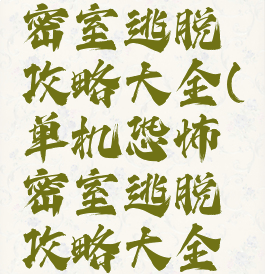 密室逃脱
攻略大全(
单机恐怖
密室逃脱
攻略大全